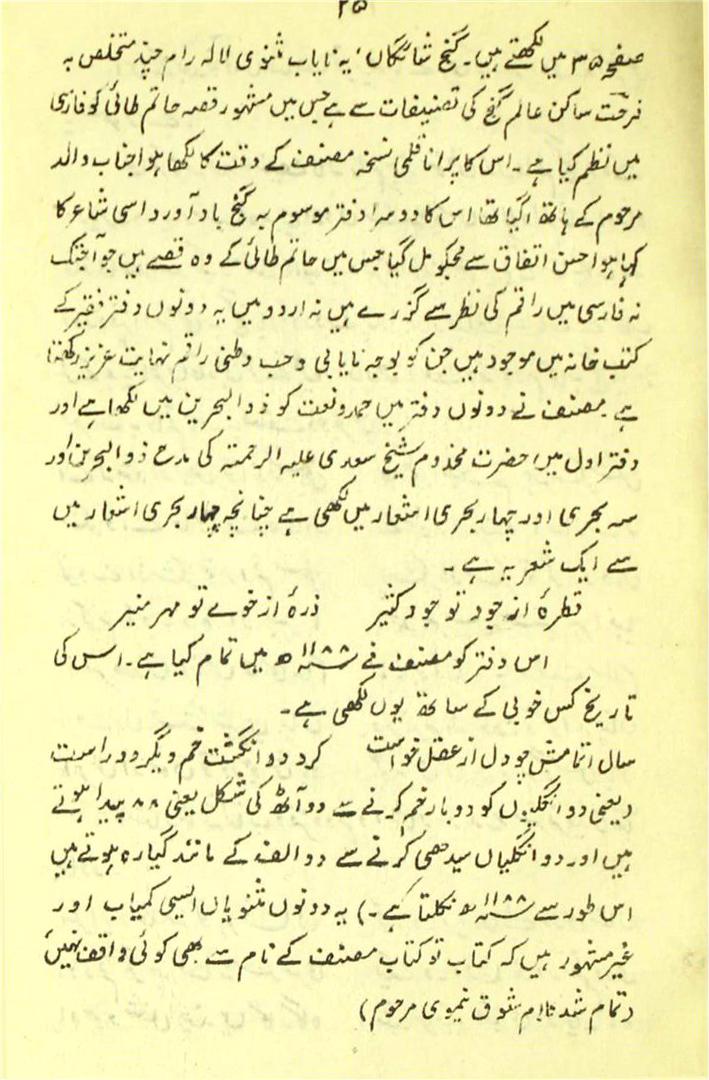 ۲۵
صفحہ ۳۵ میں لکھتے ہیں۔ گنج شائگاں، یہ نایاب مثنوی لالہ رام چند متخلص بہ
فرحت ساکن عالم گنج کی تصنیفات سے ہے جس میں مشہور قصہ حاتم طائی کو فارسی
میں نظم کیا ہے۔ اس کا پرانا قلمی نسخہ مصنف کے وقت کا لکھا ہوا جناب والد
مرحوم کے ہاتھ آگیا تھا اس کا دوسرا دفتر موسوم بہ گنج باد آورد اسی شاعر کا
کہا ہوا حسن اتفاق سے مجکو مل گیا جس میں حاتم طائی کے وہ قصے ہیں جو آجتک
نہ فارسی میں راقم کی نظر سے گزرے ہیں نہ اردو میں یہ دونوں دفتر فقیر کے
کتب خانہ میں موجود ہیں جن کو بوجہ نایابی و حب وطنی راقم نہایت عزیز رکھتا
ہے مصنف نے دونوں دفتر میں حمد و نعت کو ذو البحرین میں لکھا ہے اور
دفتر اول میں حضرت مخدوم شیخ سعدی علیہ الرحمتہ کی مدح ذو البحرین اور
سہ بحری اور چہار بحری اشعار میں لکھی ہے چنانچہ چہار بحری اشعار میں
سے ایک شعر یہ ہے۔
قطرۂ از جود تو جود کثیر ذرۂ از خوے تو مہر منیر
اس دفتر کو مصنف نے ۱۱۸۸ھ میں تمام کیا ہے۔ اس کی
تاریخ کس خوبی کے ساتھ یوں لکھی ہے۔
سال اتمامش چو دل از عقل خواست کرد دو انگشت خم و یگر دو راست
(یعنی دو انگلیوں کو دوبار خم کرنے سے دو آٹھ کی شکل یعنی ۸۸ پیدا ہوتے
ہیں اور دو انگلیاں سیدھی کرنے سے دو الف کے مانند گیارہ ہوتے ہیں
اس طور سے ۱۱۸۸ھ نکلتا ہے۔) یہ دونوں مثنویاں ایسی کمیاب اور
غیر مشہور ہیں کہ کتاب تو کتاب مصنف کے نام سے بھی کوئی واقف نہیں
(تمام شد کلام شوق نیموی مرحوم)